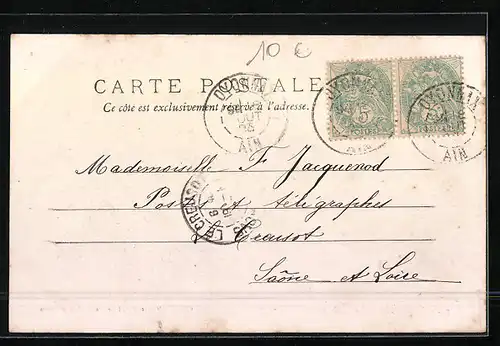 10 €
CARTE POSTALE
Ce côté est exclusivement réservé à l'adresse.
OYONNAX
OUT
AIN
OYONNAX
AIN
5
POSTES
OYONNAX
AIN
Mademoiselle F. Jacquenod
Postes et télégraphes
LE CREUSOT
Creusot
Saône et Loire